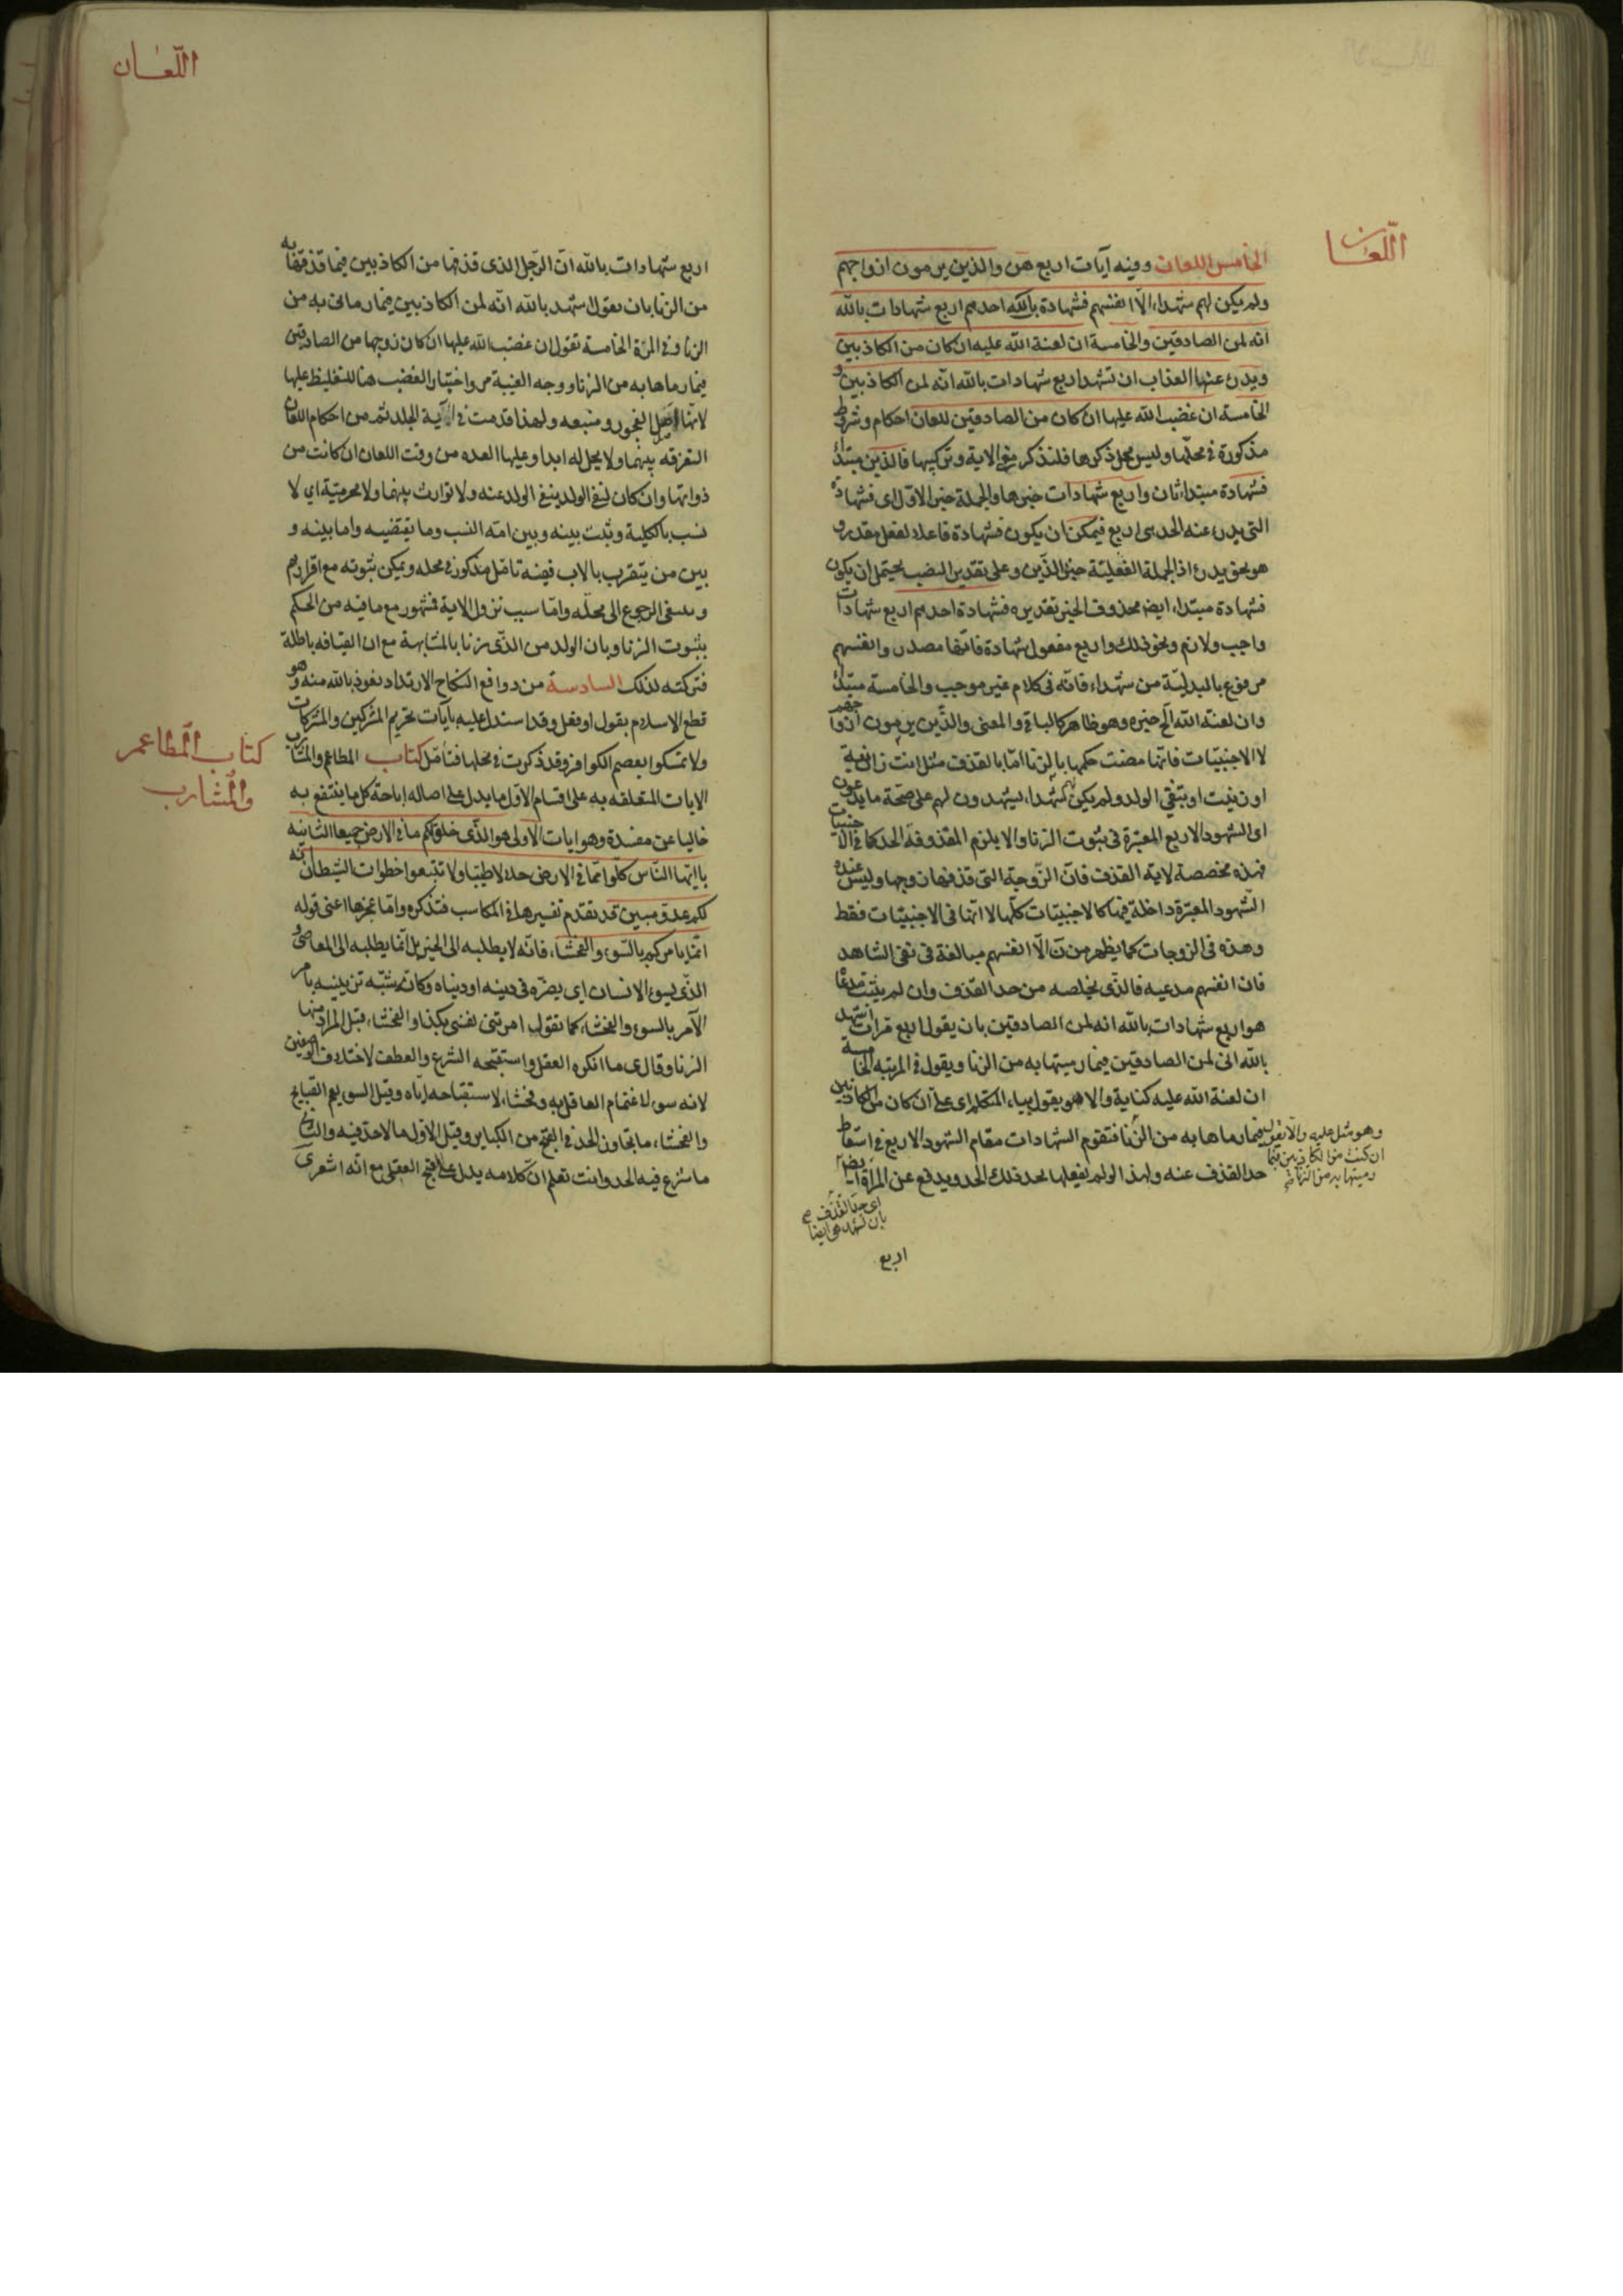 اللعان
الخامس اللعان وفيه آيات اربع هن والذين يرمون ازواجهم
ولم يكن لهم شهداء الّا انفسهم فشهادة احدهم اربع شهادات بالله
انه لمن الصادقين والخامسة ان لعنة الله عليه ان كان من الكاذبين
ويدرء عنها العذاب ان تشهد اربع شهادات بالله انه لمن الكاذبين و
الخامسة ان غضب الله عليها ان كان من الصادقين للعان احكام وشروط
مذكورة فى محلّها وليس محل ذكرها فلنذكر معنى الاية وتركيبها فالذين مبتدأ
فشهادة مبتداء ثان واربع شهادات خبرها والجملة خبر الاوّل اى فشهادة
التى يدرء عنه الحد هى اربع فيمكن ان يكون فشهادة فاعلا لفعل مقدر و
هو نحو يدرء اذ الجملة الفعليّة خبر الذّين وعلى تقدير النصب يحتمل ان يكون
فشهادة مبتداء ايضا محذوف الخبر تقديره فشهادة احدهم اربع شهادات
واجب ولازم ونحو ذلك واربع مفعول شهادة فانّها مصدر وانفسهم
مرفوع بالبدليّة من شهداء فانّه فى كلام غير موجب والخامسة مبتدأ
وان لعنة الله الخ خبره وهو ظاهر كالباقى والمعنى والذّين يرمون ازواجهم
لا الاجنبيّات فانّها مضت حكمها بالزنا امّا بالقذف مثل انت زانية
او زنيت او بنفى الولد ولم يكن لهم شهداء يشهدون لهم على صحّة ما يدعون
اى الشهود الاربع المعتبرة فى ثبوت الزنا والا يلزم المقذوفة الحد كما فى الاجنبيات
فهذه مخصصة لاية القذف فانّ الزّوجة التى قذفها زوجها وليس عنده
الشّهود المعتبرة داخلة فيها كالاجنبيّات كلّها لا انّها فى الاجنبيّات فقط
وهذه فى الزوجات كما يظهر من ن الّا انفسهم مبالغة فى نفى الشاهد
فان انفسهم مدعيه فالذّى يخلصه من حد القذف وان لم يثبت مدعا
هو اربع شهادات بالله انه لمن الصادقين بان يقول اربع مرّات اشهد
بالله انى لمن الصادقين فيما رميتها به من الزنا ويقول فى المرتبه الخامسة
ان لعنة الله عليه كناية والا هو يقول بياء المتكلم اى علىّ ان كان من الكاذبين
فيما رماها به من الزّنا فتقوم الشهادات مقام الشهود الاربع فى اسقاط
حد القذف عنه ولهذا لو لم يفعلها يحد فذلك الحد ويدفع عن المراة ايضا
وهو مثل عليه والّا يقول
ان كنت من الكاذبين فيما
رميتها به من الزنا
اى حد القذف
بان تشهد هى ايضا
اربع
اللّعان
اربع شهادات بالله انّ الرّجل الذى قذفها من الكاذبين فيما قذفها به
من الزنا بان يقول اشهد بالله انّه لمن الكاذبين فيما رمانى به من
الزنا وفى المرّة الخامسة تقول ان غضب الله عليها ان كان زوجها من الصادقين
فيما رماها به من الزنا ووجه الغيبة مر واختيار الغضب هنا للتغليظ عليها
لانّها اصل الفجور ومنبعه ولهذا قدمت فى آية الجلد ثم من احكام اللعان
التفرقه بينهما ولا يحل له ابدا وعليها العده من وقت اللعان ان كانت من
ذواتها وان كان لنفى الولد ينفى الولد عنه ولا توارث بينهما ولا محرميّة اى لا
نسب بالكلية وثبت بينه وبين امّه النسب وما يقتضيه واما بينه و
بين من يتقرب بالاب ففيه تامّل مذكور فى محله ويمكن ثبوته مع اقرارهم
وينبغى الرجوع الى محلّه وامّا سبب نزول الاية فشهور مع ما فيه من الحكم
بثبوت الزنا وبان الولد من الذّى زنا بالمشابهة مع ان القيافه باطلة
فتركته لذلك السادسة من دوافع النكاح الارتداد نعوذ بالله منه وهو
قطع الاسلام بقول او فعل وقد استدل عليه بآيات تحريم المشركين والمشركات
ولا تمسكوا بعصم الكوافر وقد ذكرت فى محلها فتأمّل كتاب المطاعم والمشارب
الايات المتعلقه به على اقسام الاوّل ما يدل على اصاله اباحة كل ما ينتفع به
خاليا عن مفسدة وهو ايات الاولى هو الذّى خلق لكم ما فى الارض جميعا الثانية
يا ايّها النّاس كلوا ممّا فى الارض حلالا طيّبا ولا تتّبعوا خطوات الشيطان انّه
لكم عدوّ مبين قد تقدم تفسيرها فى المكاسب فتذكره وامّا عجزها اعنى قوله
انّما يامركم بالسّوء والفحشاء فانّه لا يطلبه الى الخير بل انّما يطلبه الى المعاصى و
الذّى يسوء الانسان اى يضرّه فى دينه او دنياه وكانّه شبّه تزيينه بامر
الآمر بالسوء والفحشاء كما تقول امرتنى نفسى بكذا والفحشاء قيل المراد منها
الزنا وقال ى ما انكره العقل واستقبحه الشرع والعطف لاختلاف الوصفين
لانه سوء لاغتمام العاقل به وفحشاء لاستقباحه ايّاه وقيل السوء يعم القبايح
والفحشاء ما تجاوز الحد فى القبح من الكباير وقيل الاوّل ما لا حد فيه والثانى
ما شرع فيه الحد وانت تعلم انّ كلامه يدل على القبح العقلى مع انّه اشعرى
كتاب المطاعم
والمشارب